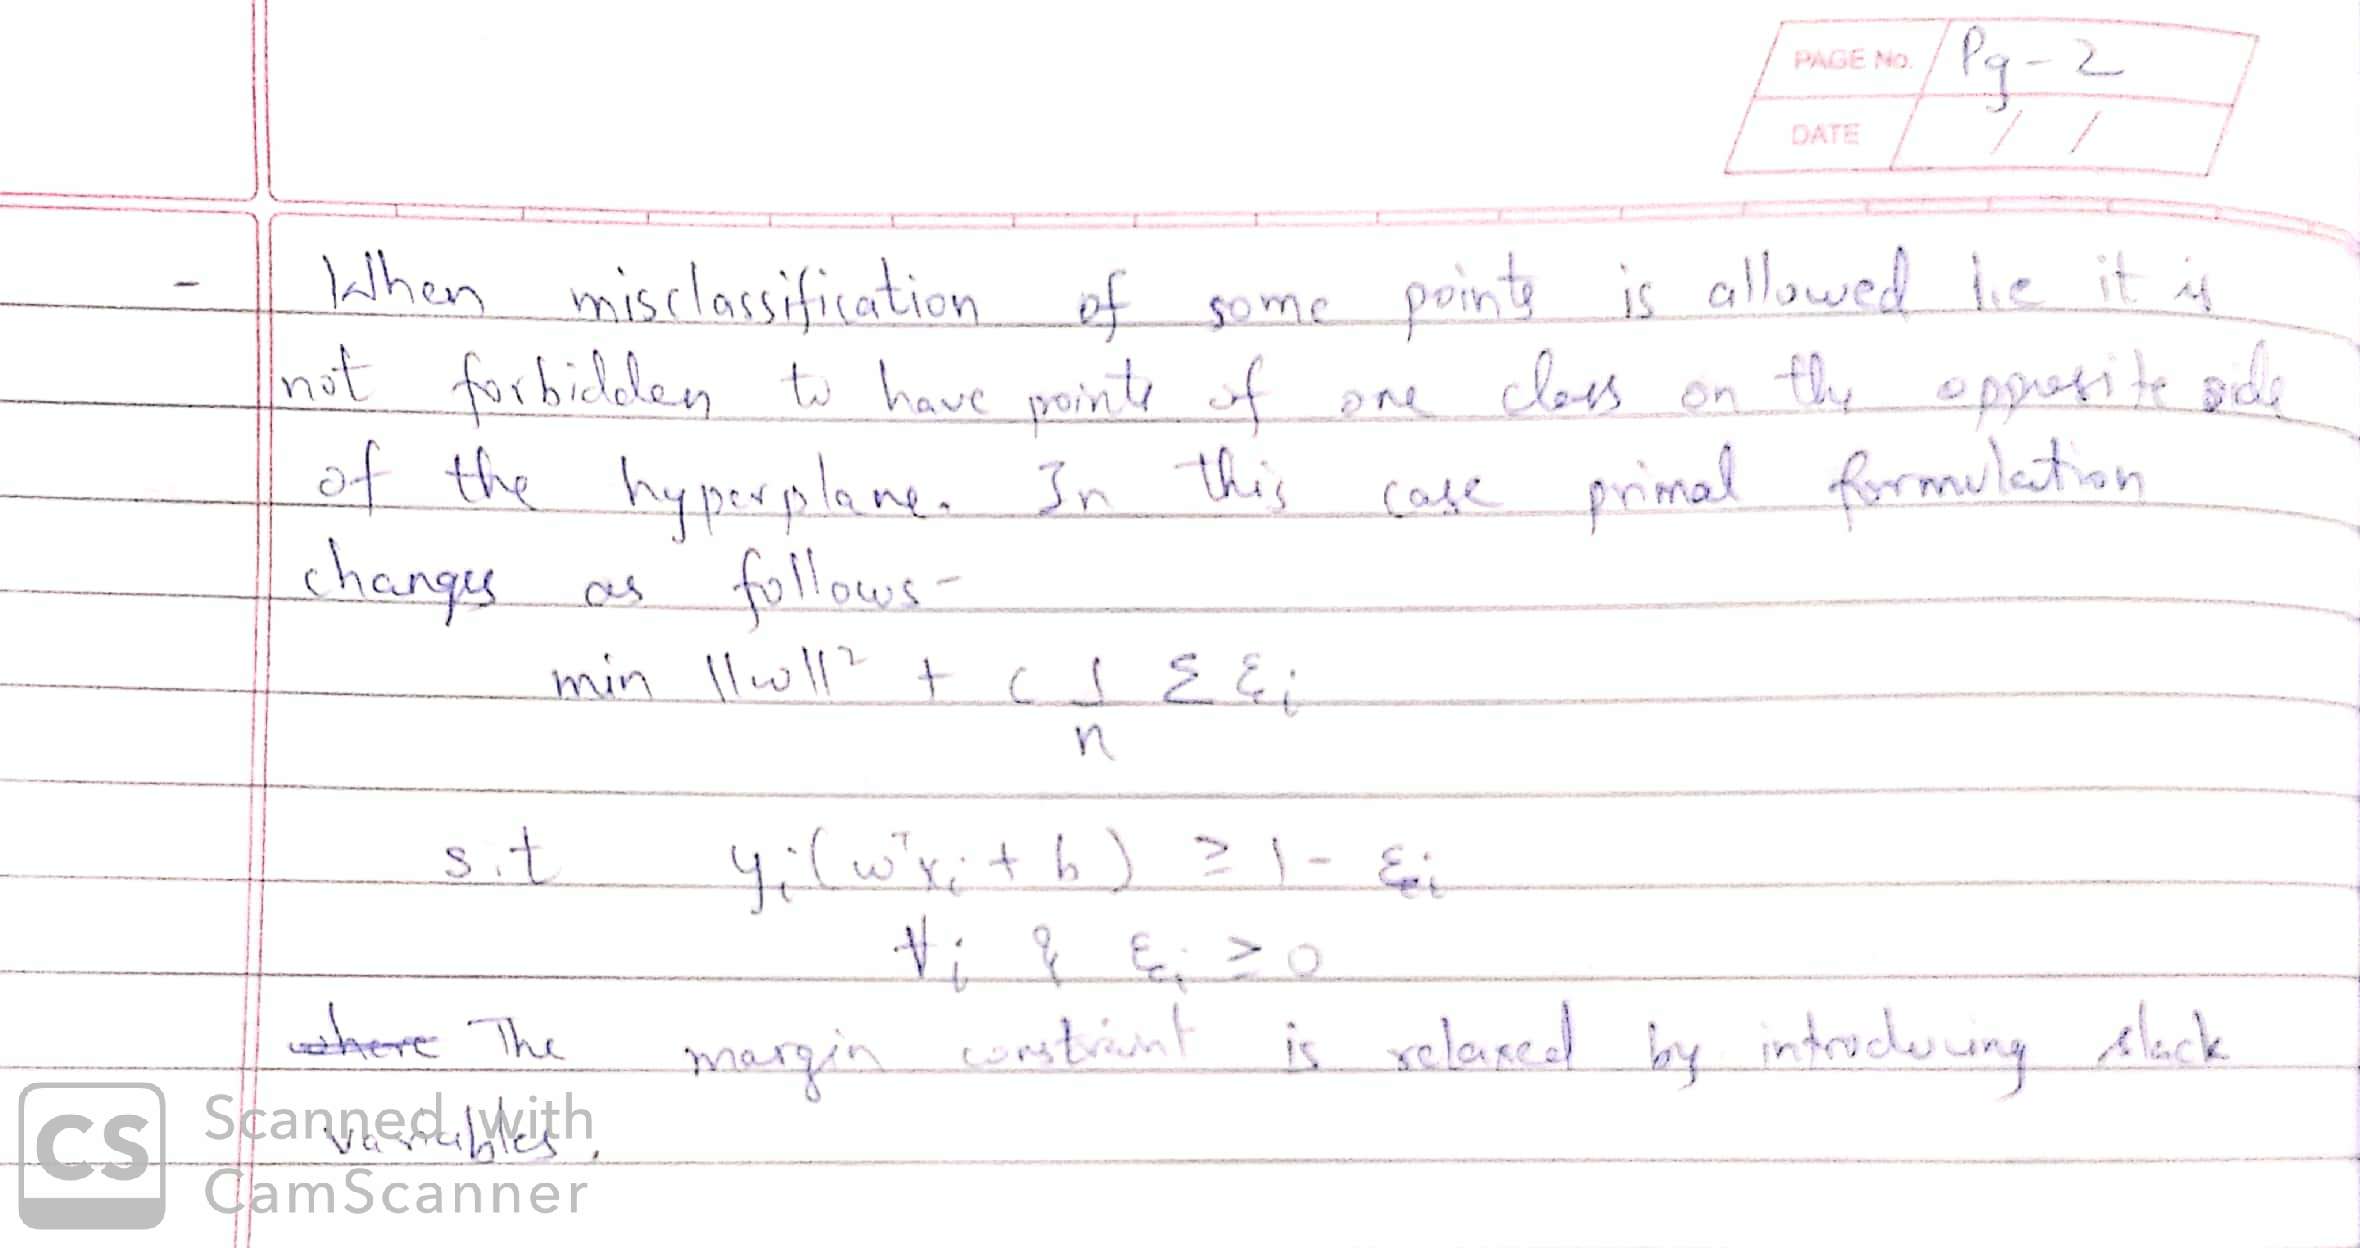 PAGE No. Pg-2
DATE / /
- When misclassification of some points is allowed i.e it is
not forbidden to have points of one class on the opposite side
of the hyperplane. In this case primal formulation
changes as follows-
min ||w||² + c 1/n Σ ξi
s.t yi(wᵀxi + b) ≥ 1 - ξi
∀i & ξi ≥ 0
where The margin constraint is relaxed by introducing slack
variables.
CS Scanned with
CamScanner